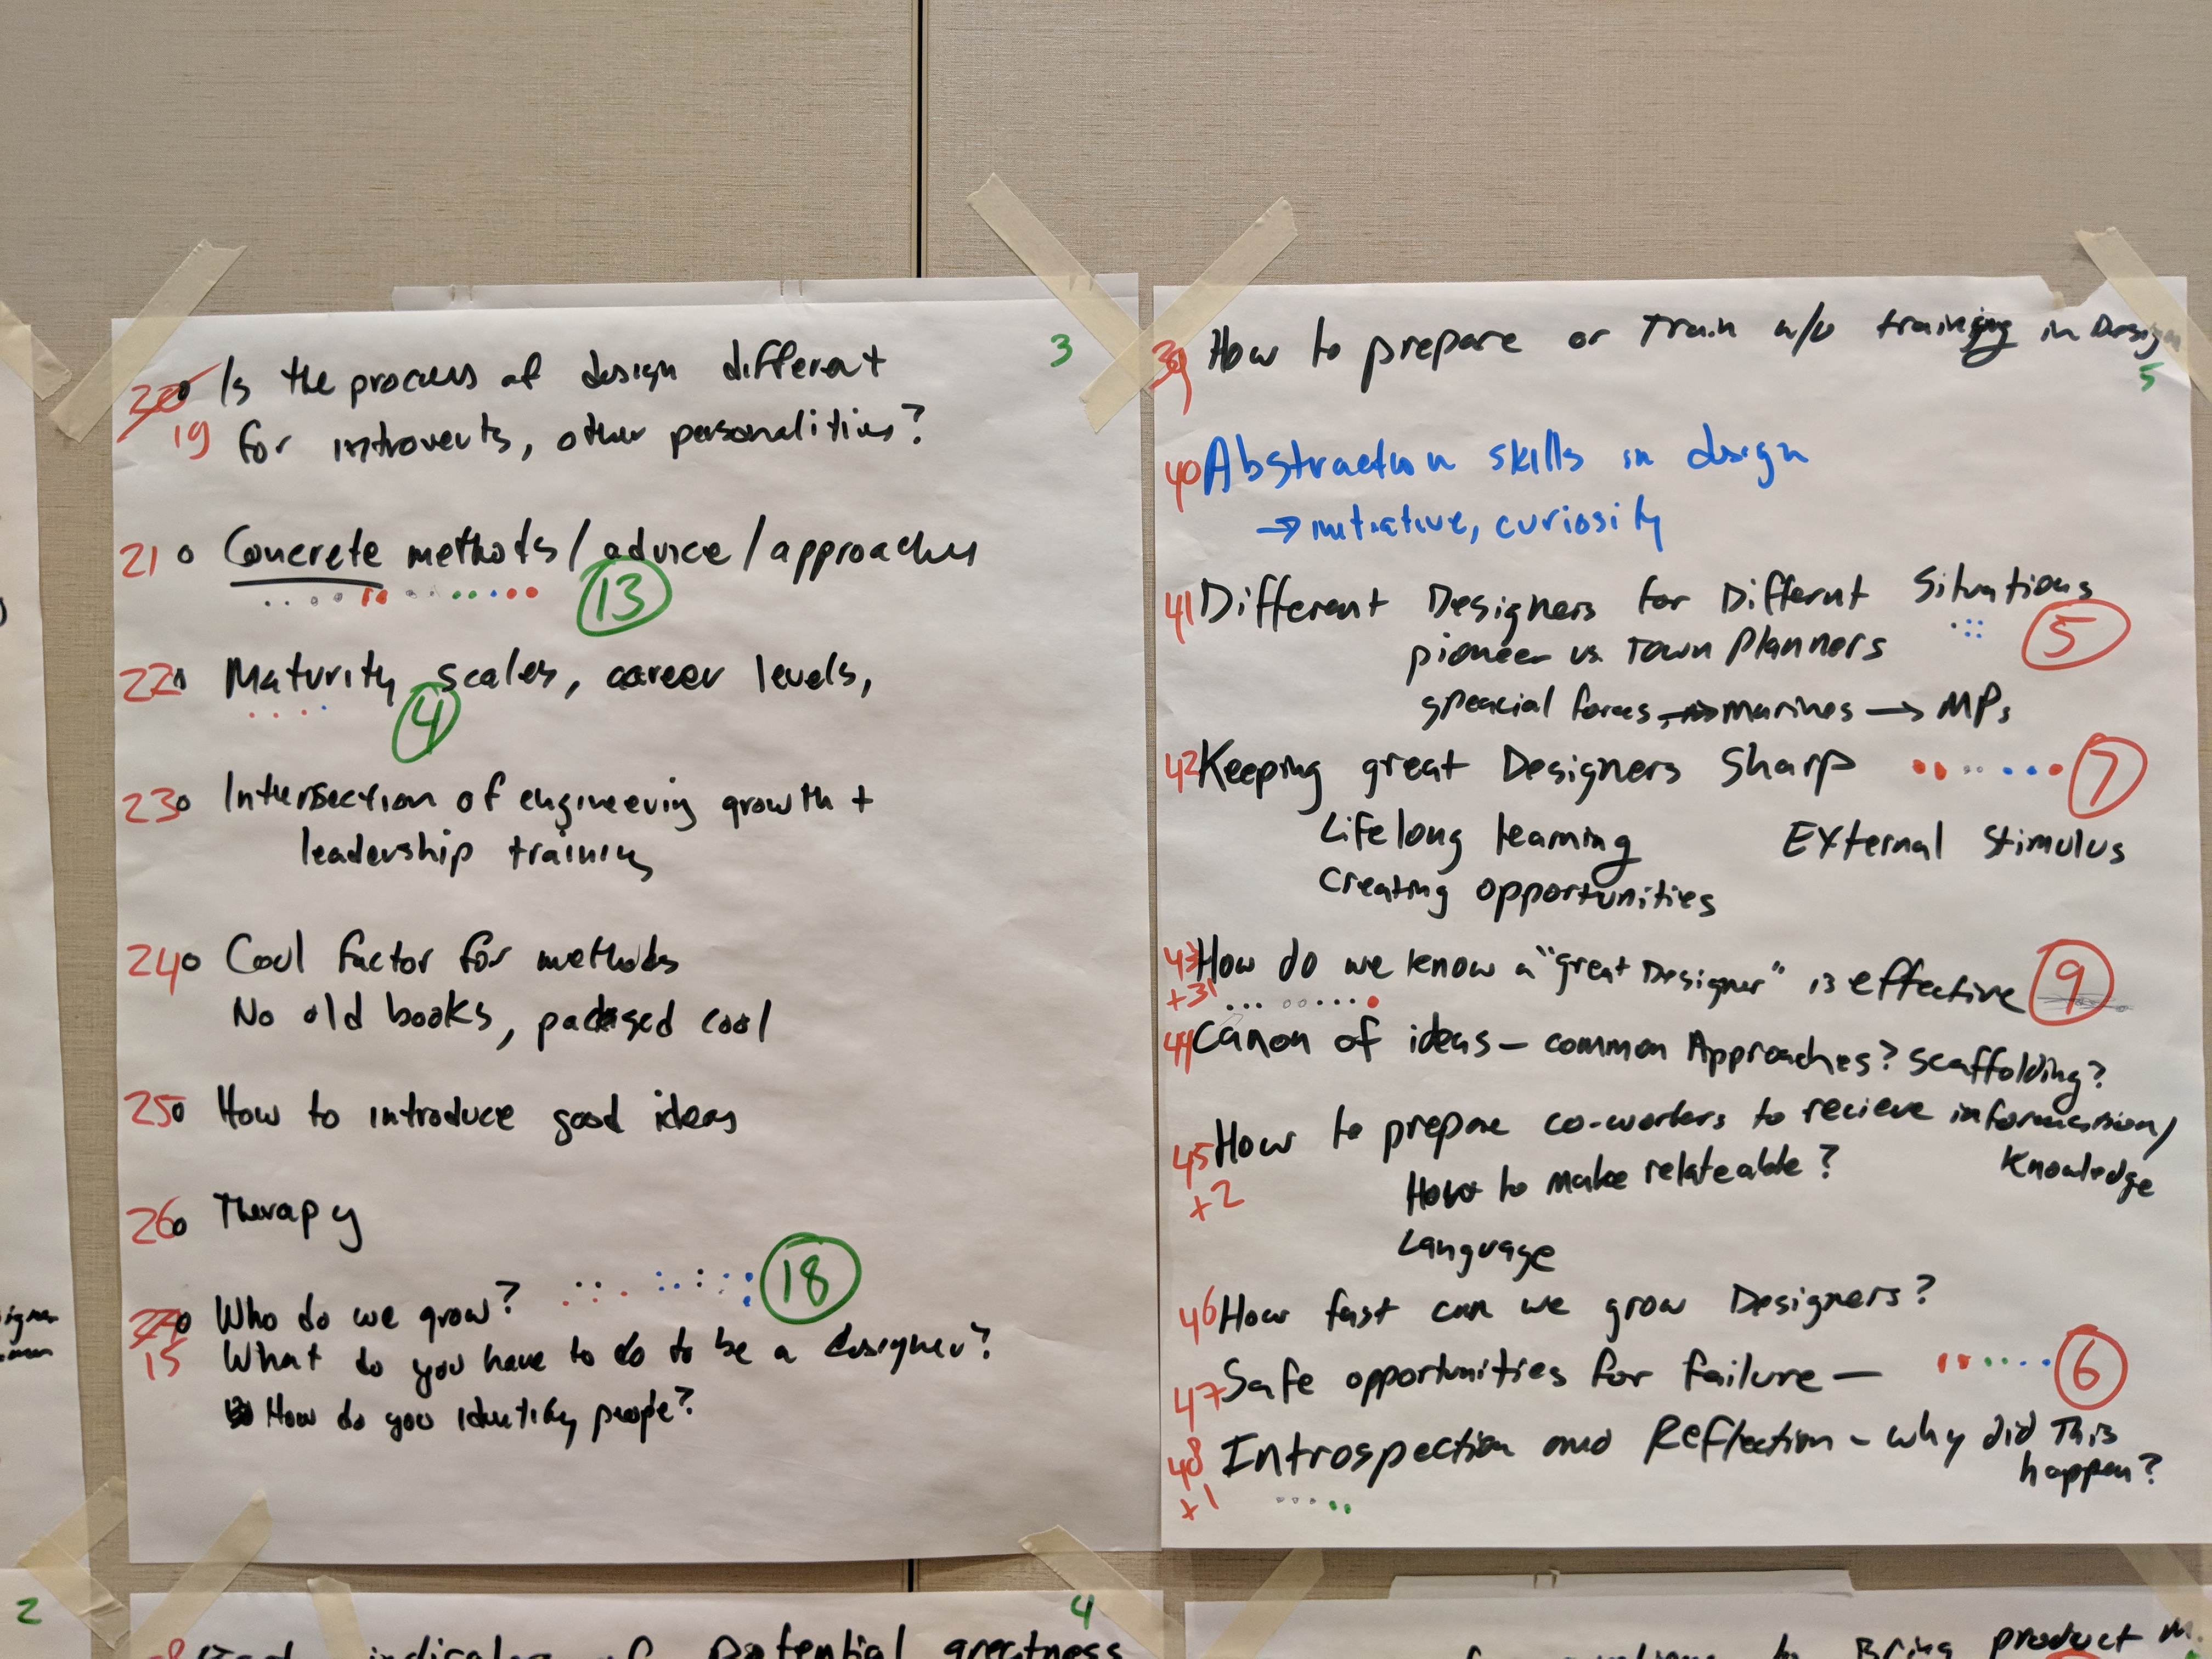 3
20 Is the process of design different
19 for introverts, other personalities?
21 o Concrete methods/advice/approaches
13
22 Maturity scales, career levels,
4
23o Intersection of engineering growth +
leadership training
24o Cool factor for methods
No old books, packaged cool
25o How to introduce good ideas
26o Therapy
Who do we grow? 18
15 What do you have to do to be a designer?
How do you identify people?
39 How to prepare or Train w/o training in Design
5
40 Abstraction skills in design
→ initiative, curiosity
41 Different Designers for Differnt Situations
5
pioneer vs Town Planners
speacial forces → marines → MPs
42 Keeping great Designers Sharp 7
Lifelong learning External Stimulus
Creating opportunities
43 How do we know a "great Designer" is effective 9
+31
44 Canon of ideas - common Approaches? scaffolding?
45 How to prepare co-workers to recieve information/
Knowledge
+2 How to make relateable?
Language
46 How fast can we grow Designers?
47 Safe opportunities for failure — 6
48 Introspection and Reflection - why did This
happen?
+1
2
4
indicator of Potential greatness
to Bring product M.